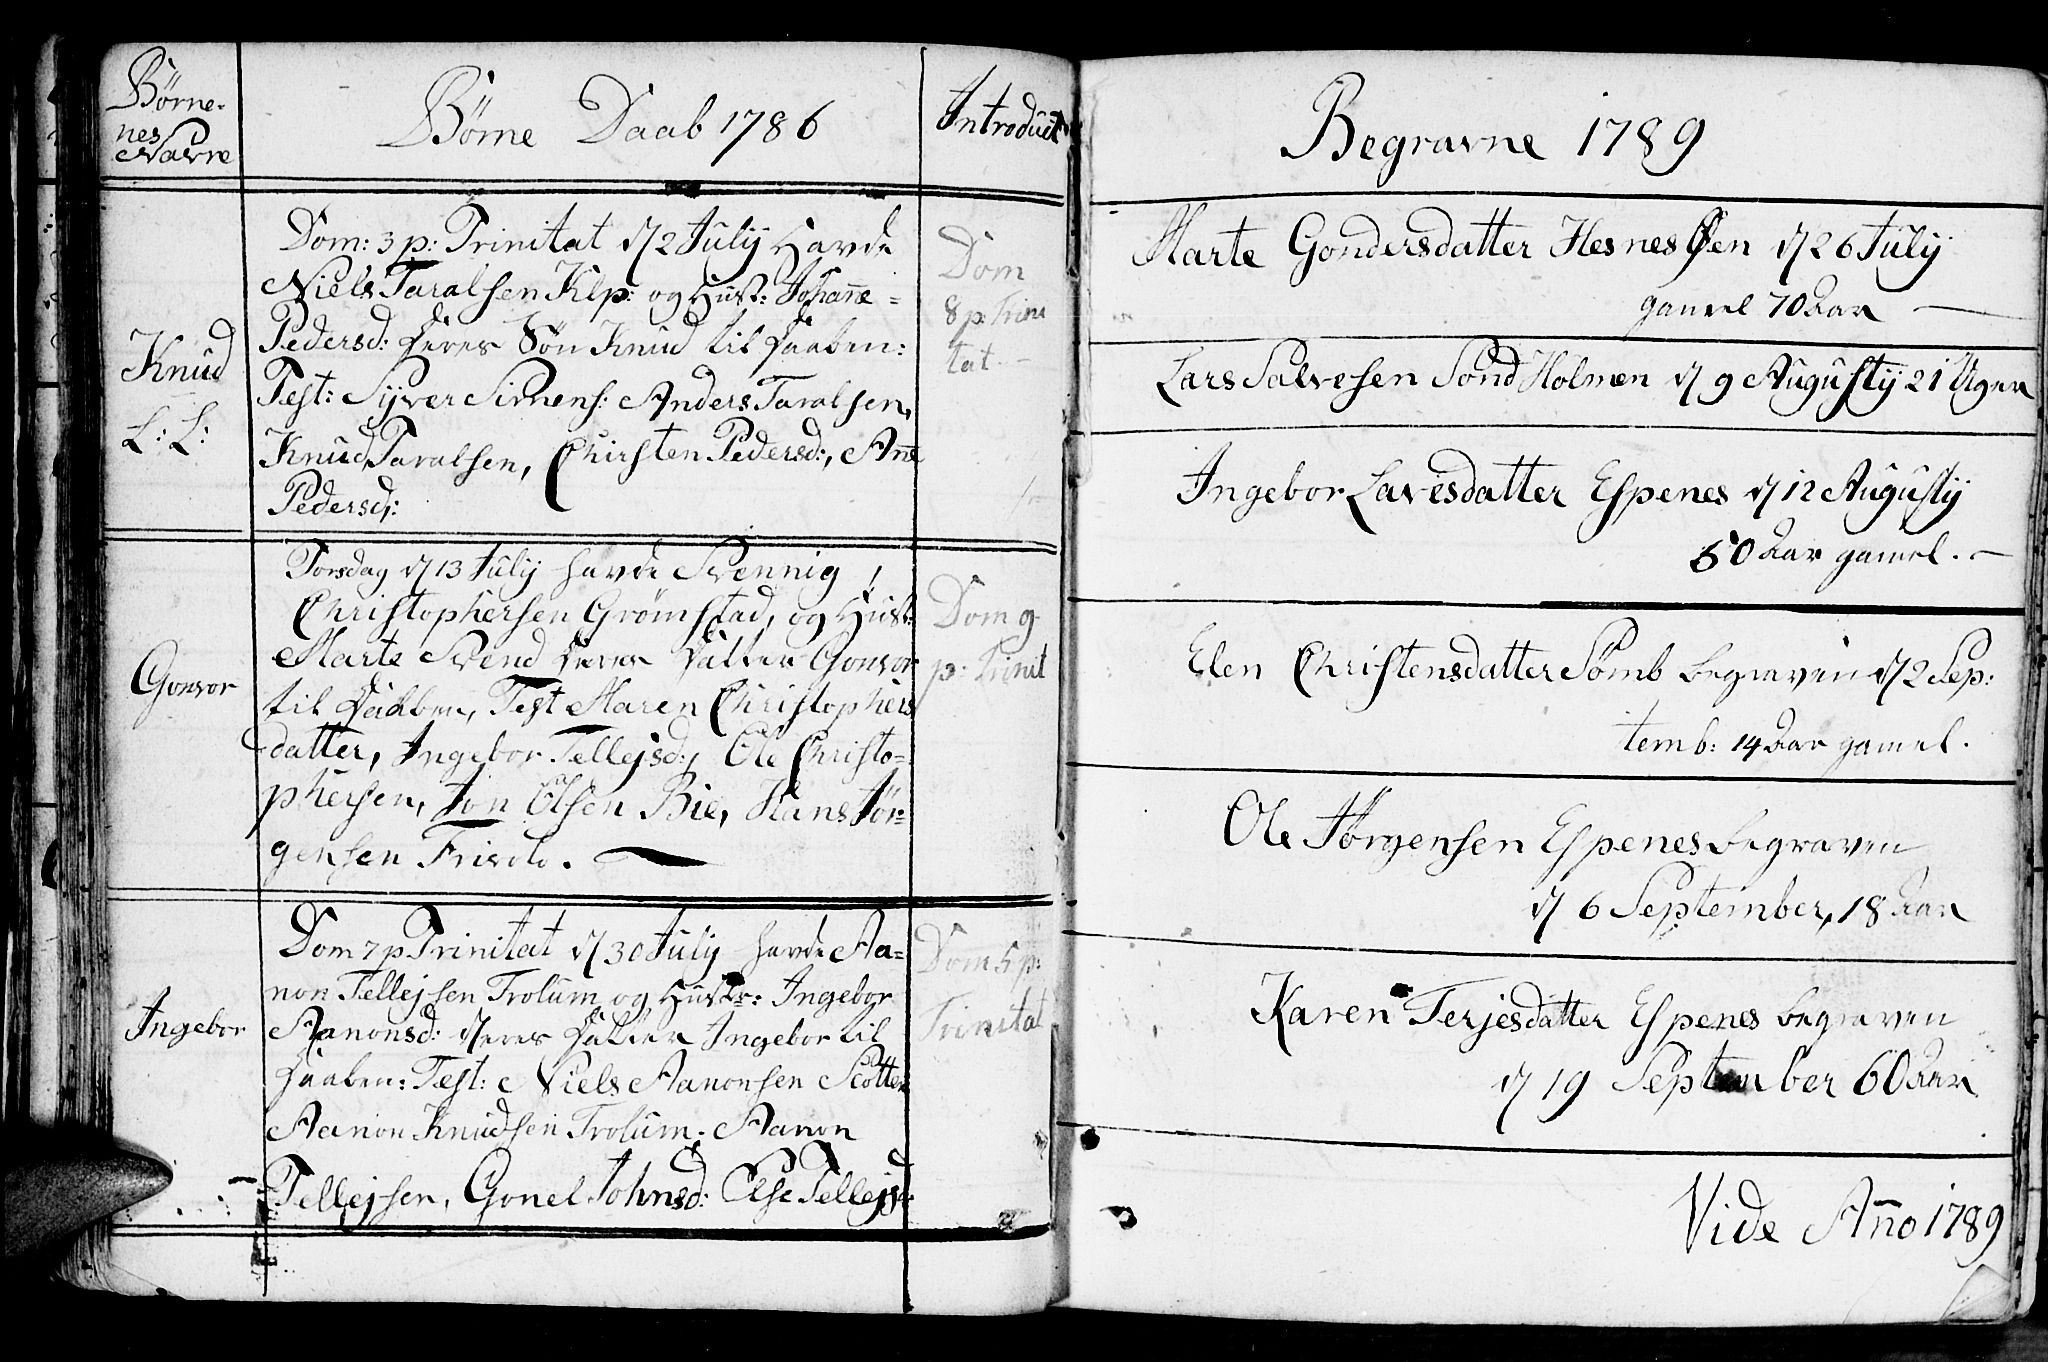 Børne-
nes
Navne
Børne Daab 1786
Introduct
Knud
L: L:
Dom: 3 p: Trinitat d 2 July Havde
Niels Taralsen Klp: og Hust: Johane
Pedersd: deres Søn Knud til daaben:
Test: Syver Simens: Anders Taralsen,
Knud Taralsen, Chirsten Pedersd:, Ane
Pedersd:
Dom
8 p: Trini
tat. –
Gonvor
Torsdag d 13 July havde Svennig
Christophersen Grømstad, og Hust:
Marte Svend deres datter Gonvor
til daaben, Test Maren Christophers
datter, Ingebor Tellejsd:, Ole Christo-
phersen, Jon Olsen Bie, Hans Jør-
gensen Frivold.
Dom 9
p: Trinit
Ingebor
Dom 7 p Trinitat d 30 July havde Aa-
non Tellejsen Trolum og Hustr: Ingebor
Aanonsd: deres datter Ingebor til
daaben: Test: Niels Aanonsen
Aanon Knudsen Trolum. Aanon
Tellejsen, Gonel Johnsd: Else Tellejsd:
Dom 5 p:
Trinitat
Begravne 1789
Marte Gondersdatter Hesnes Øen d 26 July
gamel 70 Aar —
Lars Salvesen Sond Holmen d 9 Augusty 21 Uger
Ingebor Lavesdatter Espenes d 12 Augusty
50 Aar gamel. —
Elen Christensdatter Sømb begraven d 2 Sep:
temb: 14 Aar gamel.
Ole Jørgensen Espenes begraven
d 6 September, 18 Aar
Karen Terjesdatter Espenes begraven
d 19 September 60 Aar
Vide Anno 1789